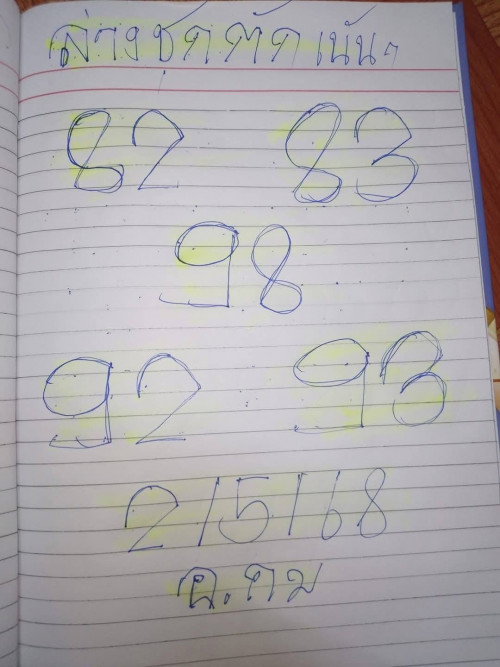 ล่างชุดตัดเน้นๆ
82 83
98
92 93
2/5/68
อ.คม